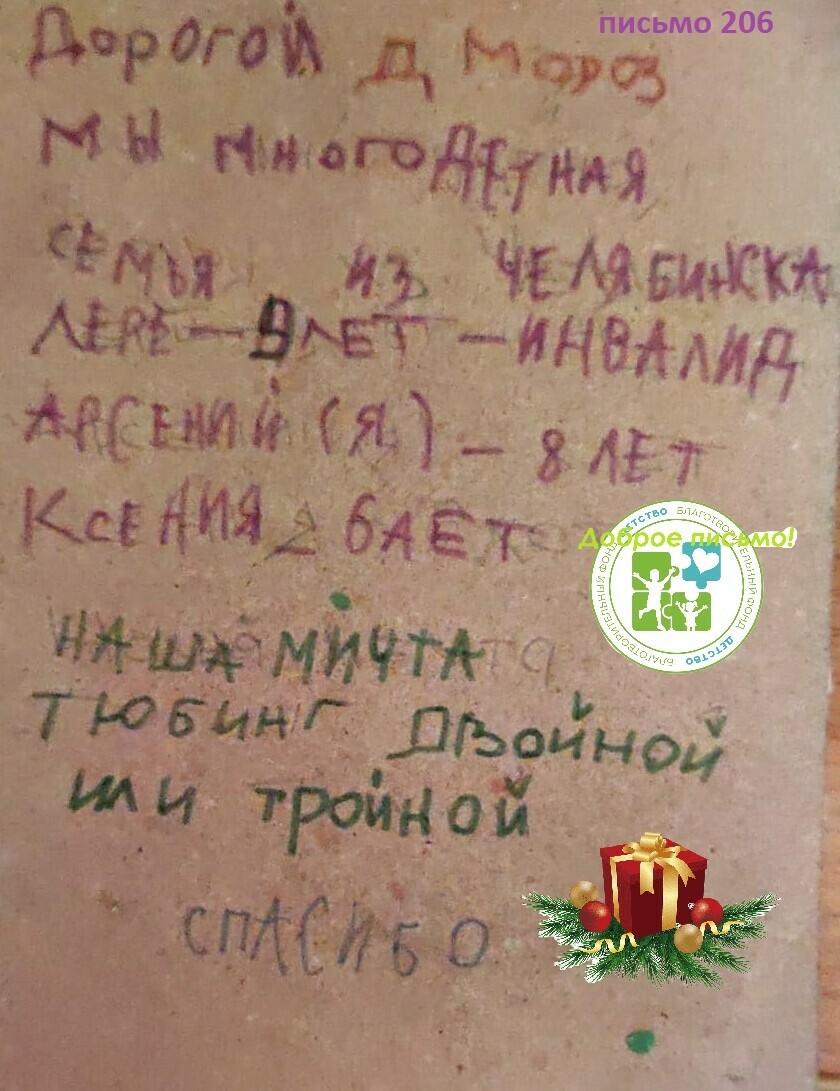 письмо 206
Дорогой Д Мороз
МЫ многоДЕтНАЯ
СЕМЬЯ ИЗ ЧЕЛЯБИНСКА
ЛЕРЕ – 9 ЛЕТ – ИНВАЛИД
АРСЕНИЙ (Я) – 8 ЛЕТ
КСЕНИЯ 6 ЛЕТ
Доброе письмо!
БЛАГОТВОРИТЕЛЬНЫЙ ФОНД ДЕТСТВО БЛАГОТВОРИТЕЛЬНЫЙ ФОНД ДЕТСТВО
НАША МИЧТА
ТЮБИНГ ДВОЙНОЙ
или тройной
СПАСИБО